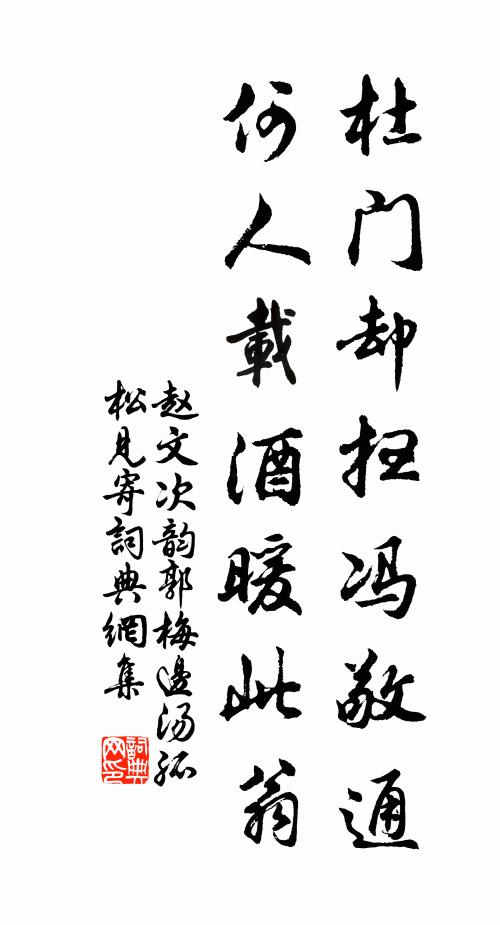 杜门却扫冯敬通
何人載酒暖此翁
赵文次韵郭梅邊汤孤
松見寄詞典網集
詞典网印